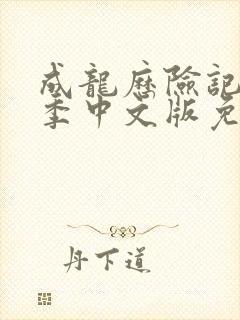 成龍歷險記
季中文版免
丹下道